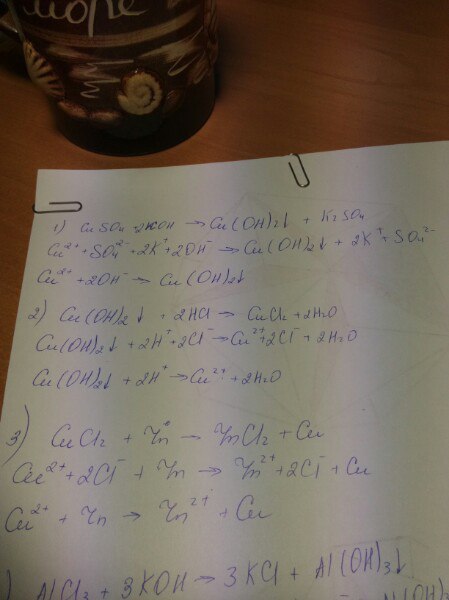 море
1) CuSO4 + 2KOH → Cu(OH)2↓ + K2SO4
Cu²⁺ + SO4²⁻ + 2K⁺ + 2OH⁻ → Cu(OH)2↓ + 2K⁺ + SO4²⁻
Cu²⁺ + 2OH⁻ → Cu(OH)2↓
2) Cu(OH)2↓ + 2HCl → CuCl2 + 2H2O
Cu(OH)2↓ + 2H⁺ + 2Cl⁻ → Cu²⁺ + 2Cl⁻ + 2H2O
Cu(OH)2↓ + 2H⁺ → Cu²⁺ + 2H2O
3) CuCl2 + Zn⁰ → ZnCl2 + Cu
Cu²⁺ + 2Cl⁻ + Zn → Zn²⁺ + 2Cl⁻ + Cu
Cu²⁺ + Zn → Zn²⁺ + Cu
) AlCl3 + 3KOH → 3KCl + Al(OH)3↓